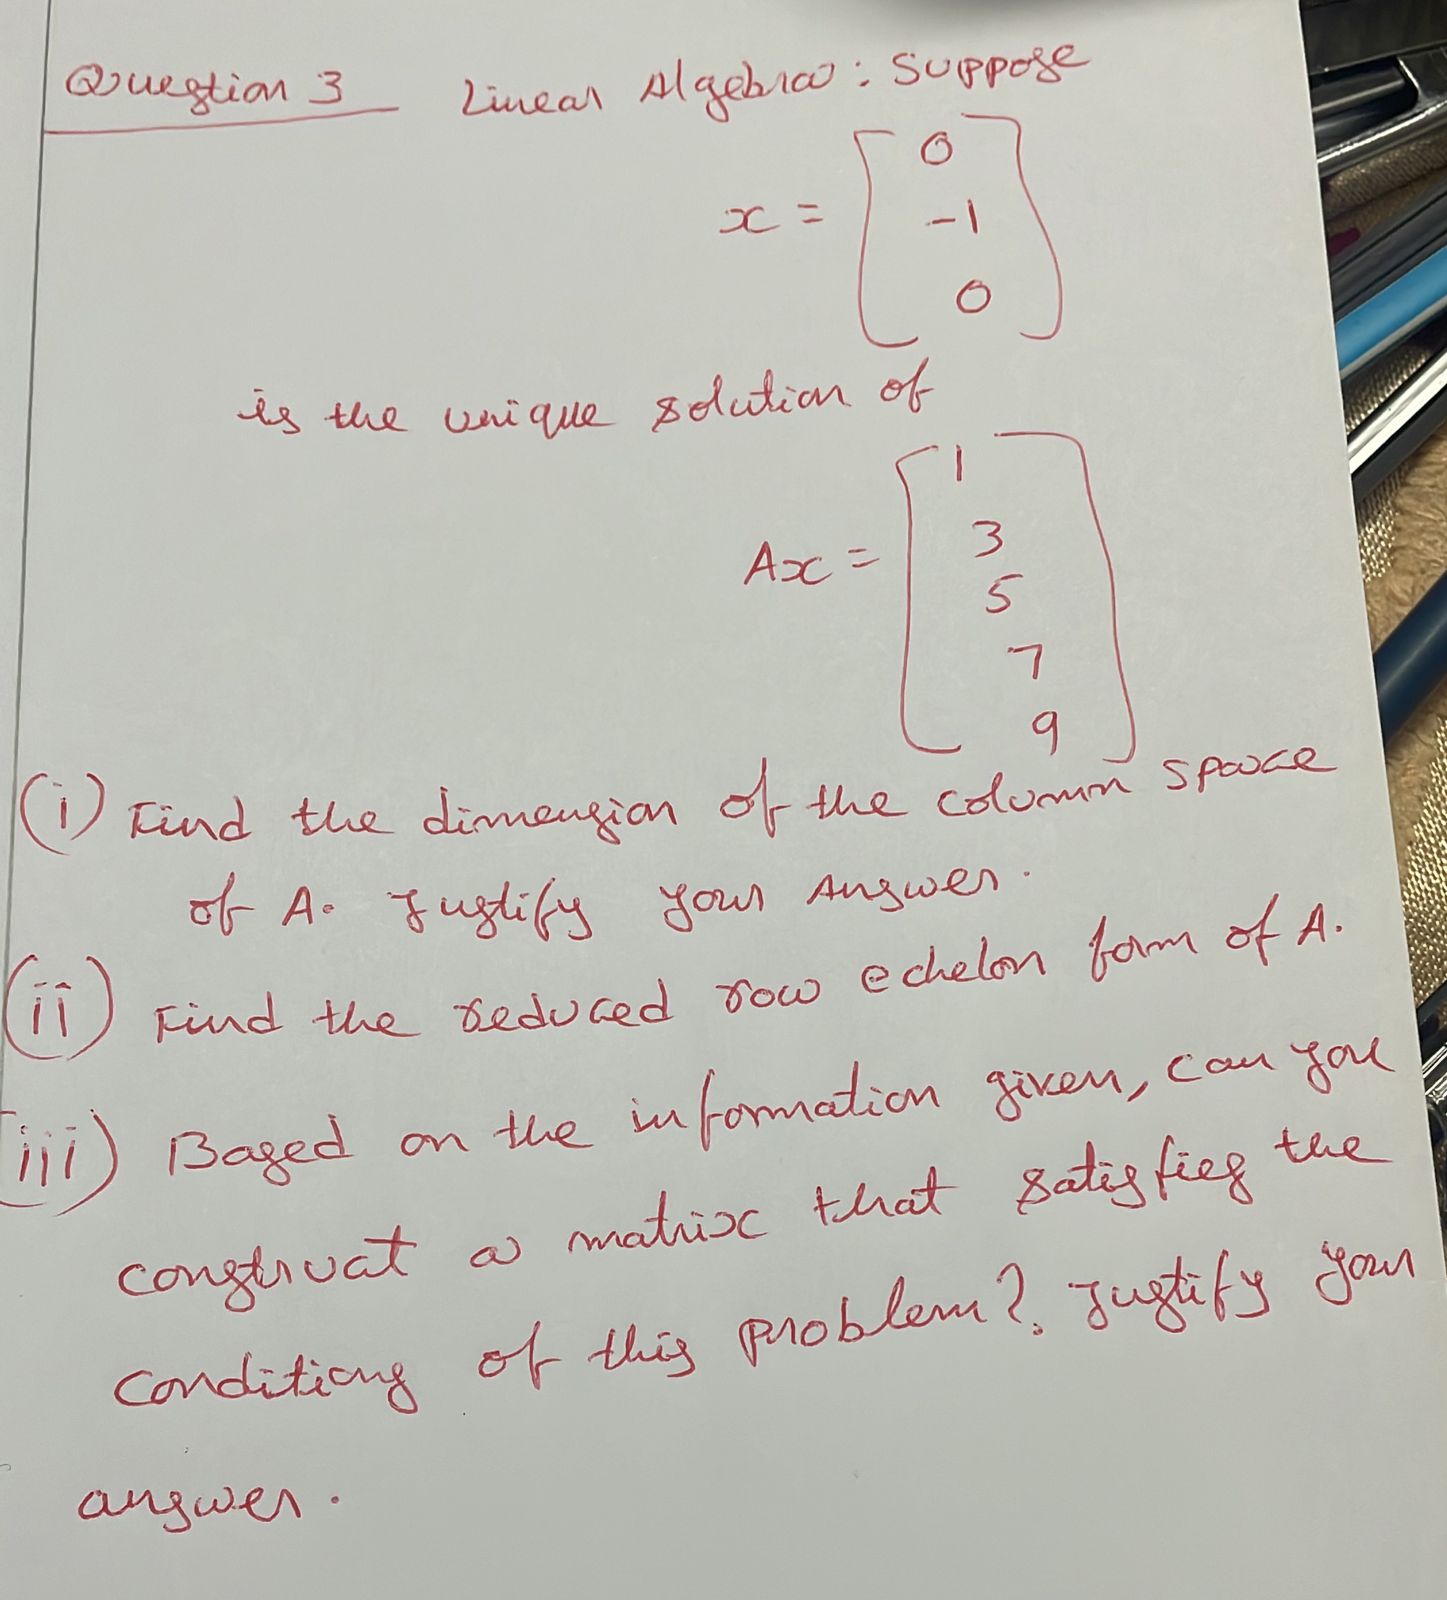 Question 3 Linear Algebra: Suppose
x = [0
-1
0]
is the unique solution of
Ax = [1
3
5
7
9]
(i) Find the dimension of the column space
of A. Justify your answer.
(ii) Find the reduced row echelon form of A.
(iii) Based on the information given, can you
construct a matrix that satisfies the
conditions of this problem?. Justify your
answer.